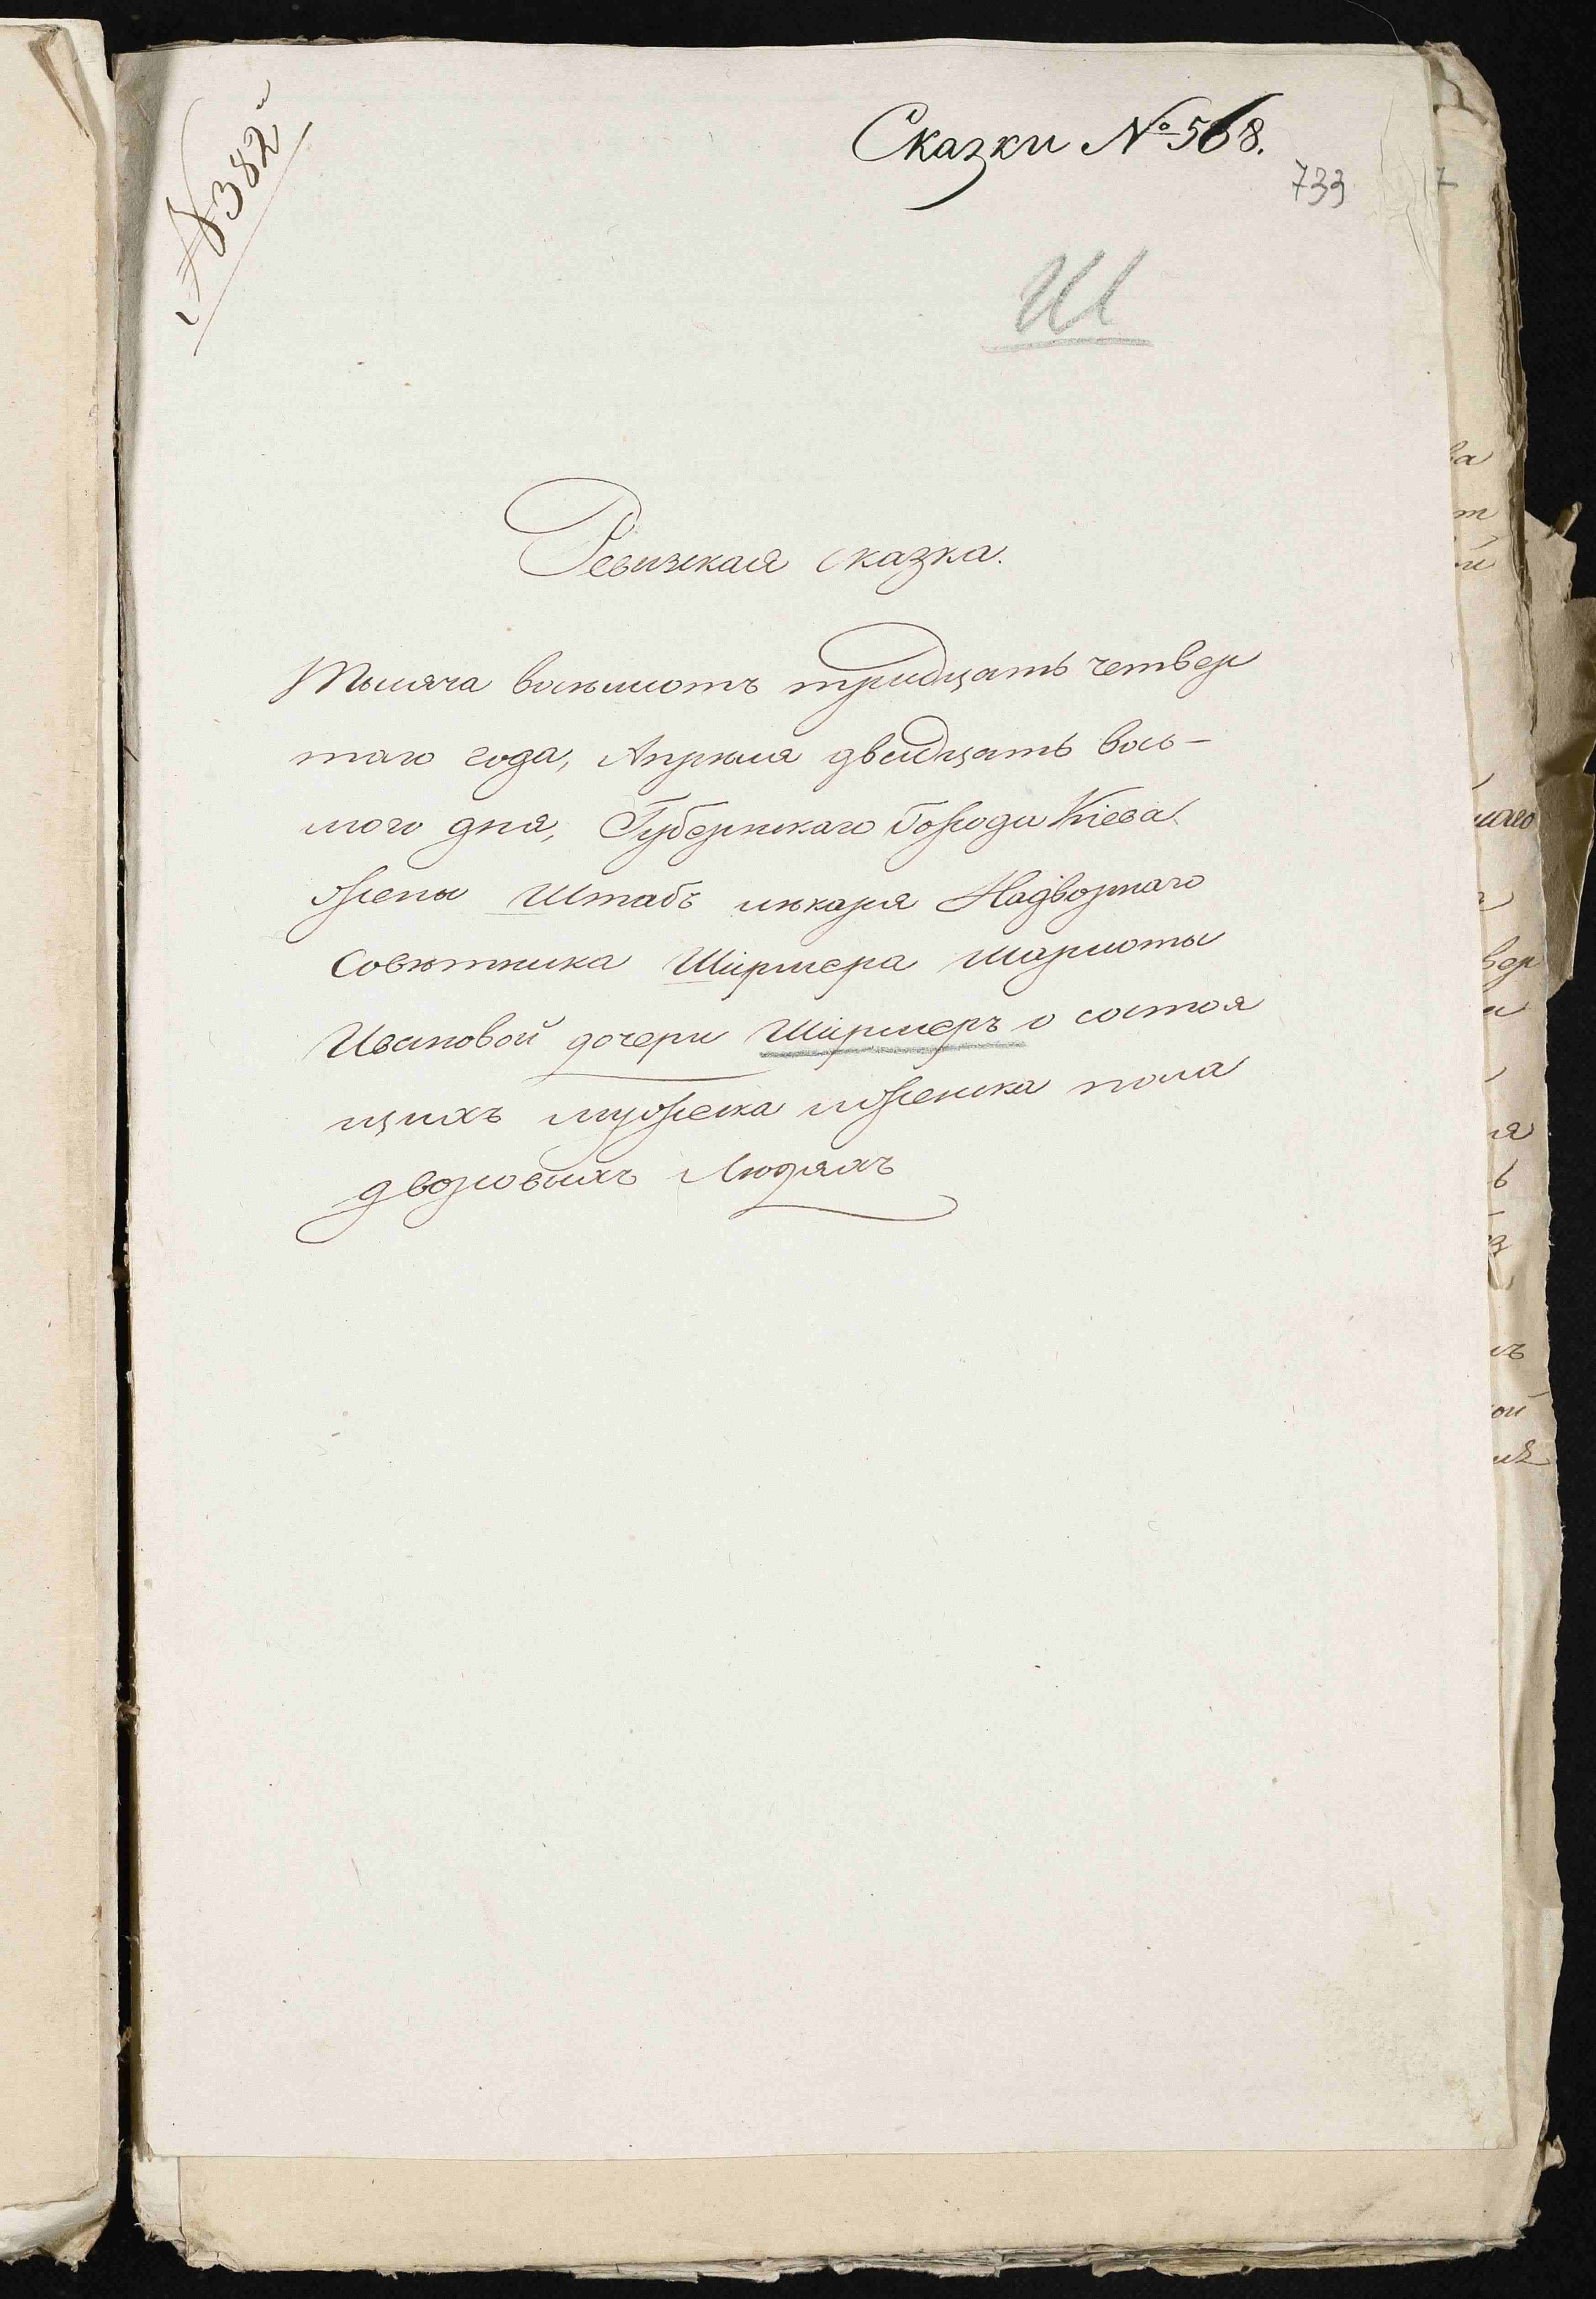 № 382й
Сказки № 568.
733
Ш
Ревизская сказка.
Тысяча восемьсотъ тридцать четвер
таго года, Апреля двадцать вось-
мого дня, Губернскаго города Кіева
жены Штабъ лѣкаря Надворнаго
Совѣтника Ширмера Шарлоты
Ивановой дочери Ширмеръ о состоя
щихъ мужеска и женска пола
дворовыхъ людяхъ